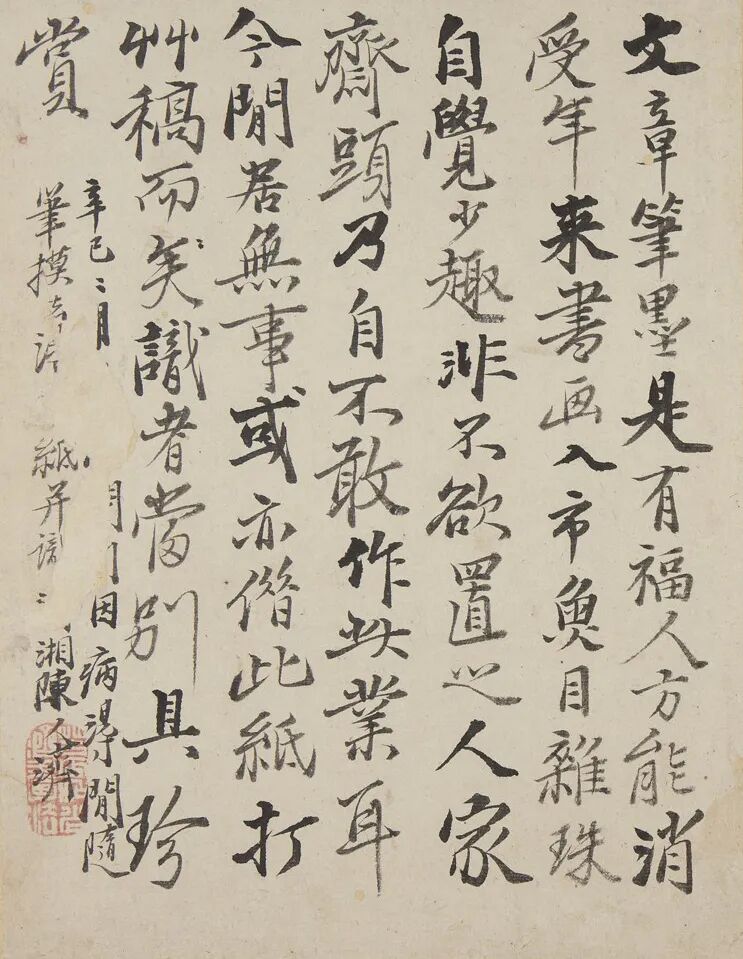 文章筆墨是有福人方能消
受年来書画入市魚目雜珠
自覺少趣非不欲置之人家
齋頭乃自不敢作此業耳
今閒居無事或亦偕此紙打
艸稿而矣識者當別具珍
賞
辛巳二月
月因病淂閒隨
筆摸
紙并
湘陳人濟